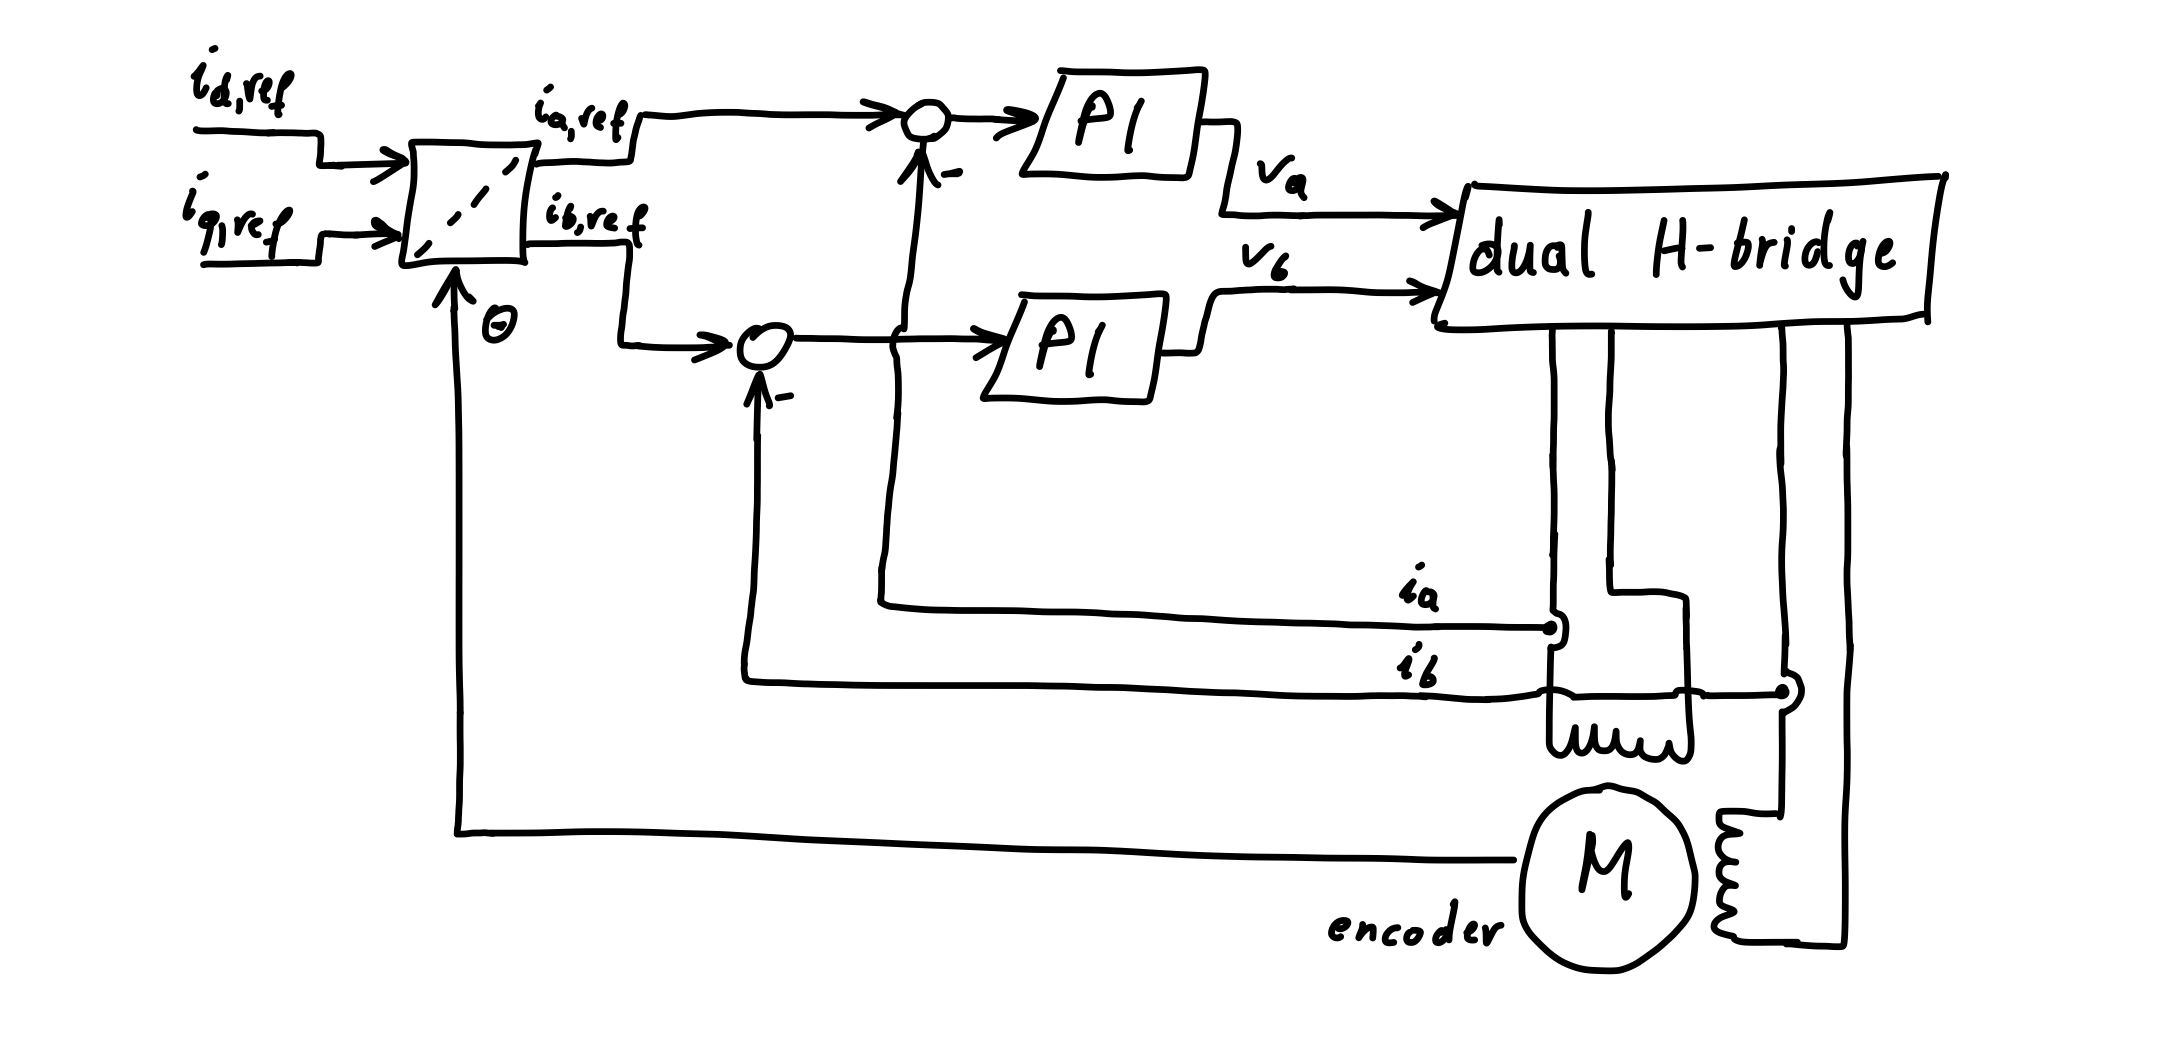 id,ref
iq,ref
θ
ia,ref
ib,ref
-
-
PI
PI
va
vb
dual H-bridge
ia
ib
M
encoder